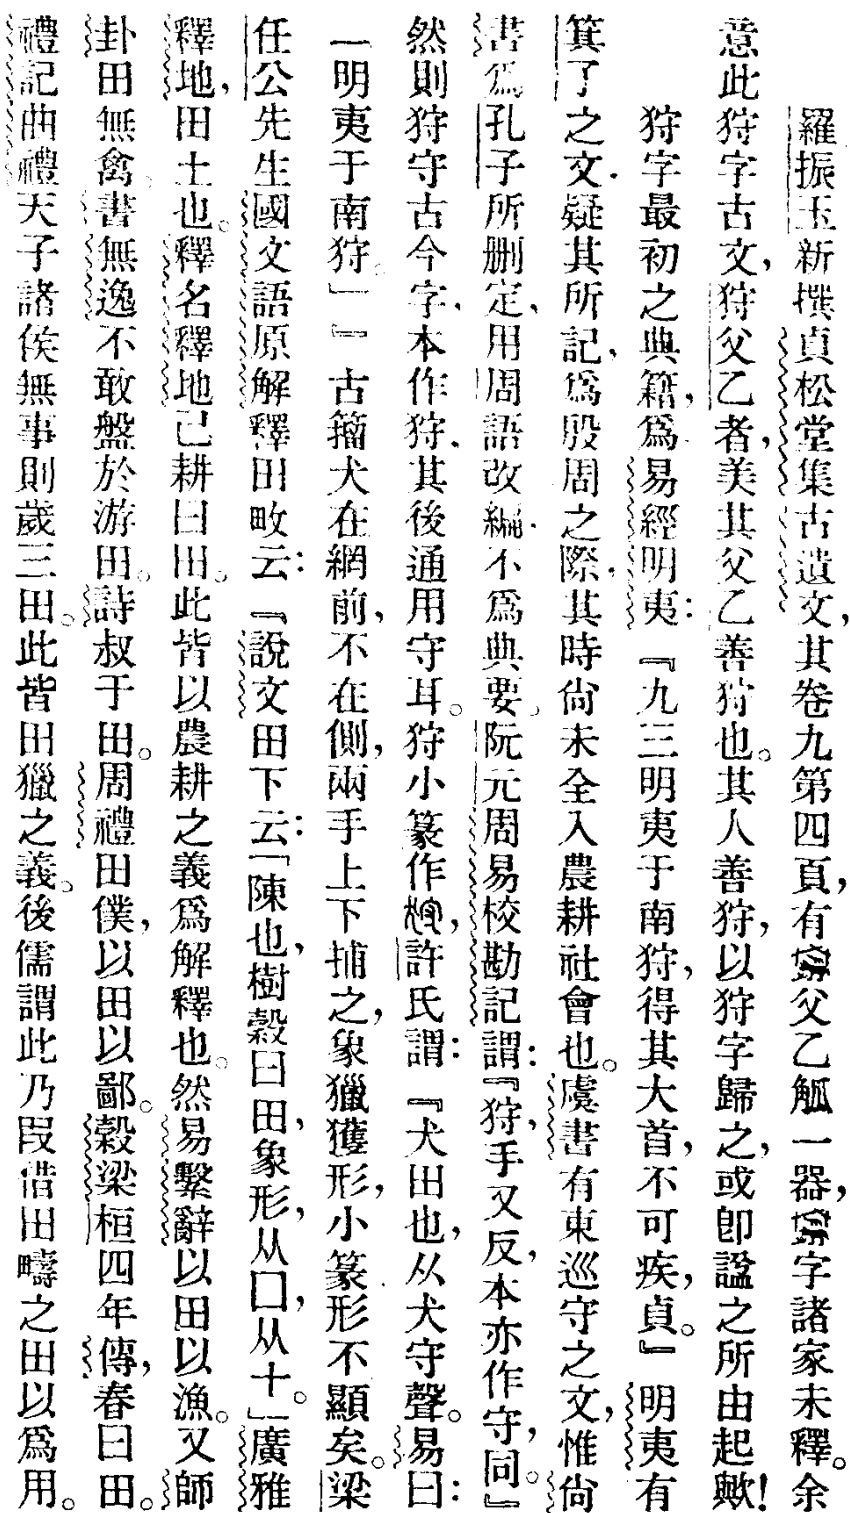 羅振玉新撰貞松堂集古遺文，其卷九第四頁，有父乙觚一器，字諸家未釋。余
意此狩字古文，狩父乙者，美其父乙善狩也。其人善狩，以狩字歸之，或卽諡之所由起歟！
狩字最初之典籍，爲易經明夷：『九三明夷于南狩，得其大首，不可疾，貞。』明夷有
箕子之文，疑其所記，爲殷周之際，其時尙未全入農耕社會也。虞書有東巡守之文，惟尙
書爲孔子所删定，用周語改編，不爲典要。阮元周易校勘記謂：『狩，手又反，本亦作守，同。』
然則狩守古今字，本作狩，其後通用守耳。狩小篆作，許氏謂：『犬田也，从犬守聲。易曰：
「明夷于南狩。」』古籀犬在網前，不在側，兩手上下捕之，象獵獲形，小篆形不顯矣。梁
任公先生國文語原解釋田畋云：『說文田下云：「陳也，樹穀曰田，象形，从囗，从十。」廣雅
釋地，田土也。釋名釋地已耕曰田。此皆以農耕之義爲解釋也。然易繫辭以田以漁。又師
卦田無禽。書無逸不敢盤於游田。詩叔于田。周禮田僕，以田以鄙。穀梁桓四年傳，春曰田。
禮記曲禮天子諸侯無事則歲三田。此皆田獵之義。後儒謂此乃叚借田疇之田以爲用。